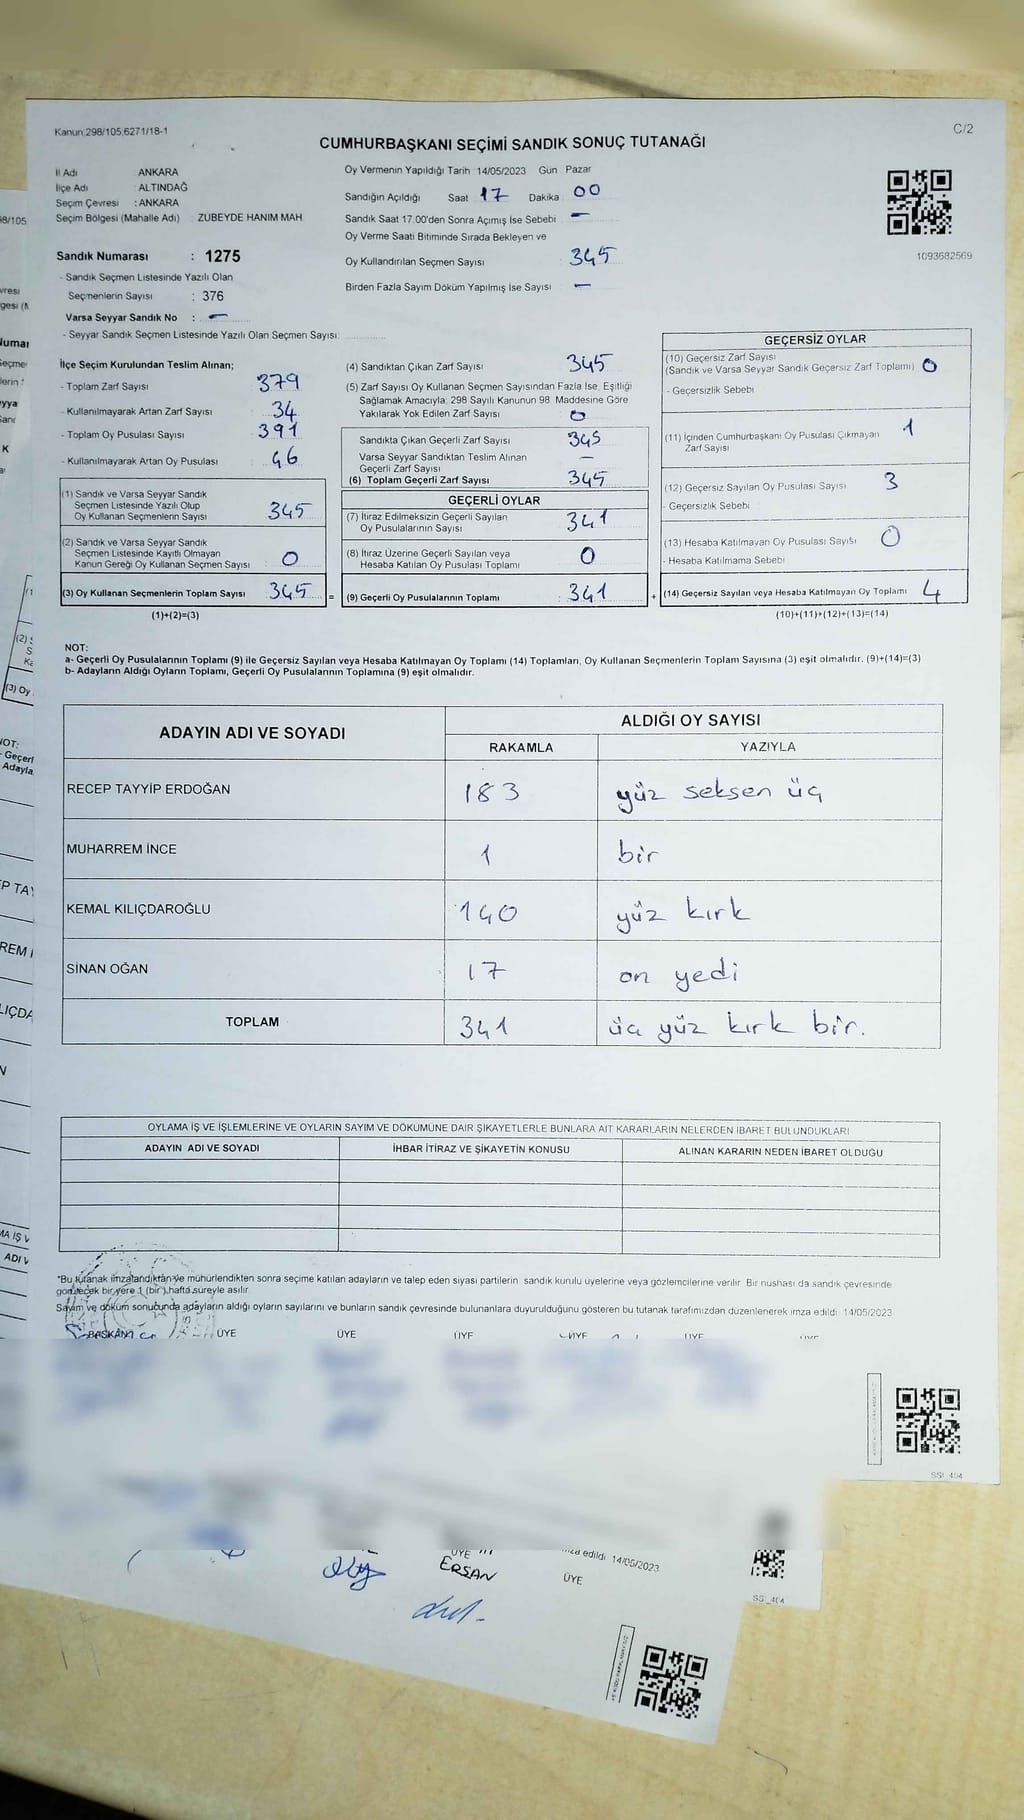 Kanun:298/105;6271/18-1
C/2
CUMHURBAŞKANI SEÇİMİ SANDIK SONUÇ TUTANAĞI
İl Adı : ANKARA
İlçe Adı : ALTINDAĞ
Seçim Çevresi : ANKARA
Seçim Bölgesi (Mahalle Adı) : ZÜBEYDE HANIM MAH.
Sandık Numarası : 1275
- Sandık Seçmen Listesinde Yazılı Olan
Seçmenlerin Sayısı : 376
Varsa Seyyar Sandık No : -
- Seyyar Sandık Seçmen Listesinde Yazılı Olan Seçmen Sayısı:
Oy Vermenin Yapıldığı Tarih 14/05/2023 Gün Pazar
Sandığın Açıldığı Saat 17 Dakika 00
Sandık Saat 17.00'den Sonra Açımış İse Sebebi -
Oy Verme Saati Bitiminde Sırada Bekleyen ve
Oy Kullandırılan Seçmen Sayısı 345
Birden Fazla Sayım Döküm Yapılmış İse Sayısı -
1093682569
İlçe Seçim Kurulundan Teslim Alınan;
- Toplam Zarf Sayısı 379
- Kullanılmayarak Artan Zarf Sayısı 34
- Toplam Oy Pusulası Sayısı 391
- Kullanılmayarak Artan Oy Pusulası 46
(1) Sandık ve Varsa Seyyar Sandık
Seçmen Listesinde Yazılı Olup
Oy Kullanan Seçmenlerin Sayısı 345
(2) Sandık ve Varsa Seyyar Sandık
Seçmen Listesinde Kayıtlı Olmayan
Kanun Gereği Oy Kullanan Seçmen Sayısı 0
(3) Oy Kullanan Seçmenlerin Toplam Sayısı 345 =
(1)+(2)=(3)
(4) Sandıktan Çıkan Zarf Sayısı 345
(5) Zarf Sayısı Oy Kullanan Seçmen Sayısından Fazla İse, Eşitliği
Sağlamak Amacıyla; 298 Sayılı Kanunun 98. Maddesine Göre
Yakılarak Yok Edilen Zarf Sayısı 0
Sandıkta Çıkan Geçerli Zarf Sayısı 345
Varsa Seyyar Sandıktan Teslim Alınan
Geçerli Zarf Sayısı -
(6) Toplam Geçerli Zarf Sayısı 345
GEÇERLİ OYLAR
(7) İtiraz Edilmeksizin Geçerli Sayılan
Oy Pusulalarının Sayısı 341
(8) İtiraz Üzerine Geçerli Sayılan veya
Hesaba Katılan Oy Pusulası Toplamı 0
(9) Geçerli Oy Pusulalarının Toplamı : 341 +
GEÇERSİZ OYLAR
(10) Geçersiz Zarf Sayısı
(Sandık ve Varsa Seyyar Sandık Geçersiz Zarf Toplamı) 0
- Geçersizlik Sebebi
(11) İçinden Cumhurbaşkanı Oy Pusulası Çıkmayan
Zarf Sayısı 1
(12) Geçersiz Sayılan Oy Pusulası Sayısı 3
- Geçersizlik Sebebi
(13) Hesaba Katılmayan Oy Pusulası Sayısı 0
- Hesaba Katılmama Sebebi
(14) Geçersiz Sayılan veya Hesaba Katılmayan Oy Toplamı 4
(10)+(11)+(12)+(13)=(14)
NOT:
a- Geçerli Oy Pusulalarının Toplamı (9) ile Geçersiz Sayılan veya Hesaba Katılmayan Oy Toplamı (14) Toplamları, Oy Kullanan Seçmenlerin Toplam Sayısına (3) eşit olmalıdır. (9)+(14)=(3)
b- Adayların Aldığı Oyların Toplamı, Geçerli Oy Pusulalarının Toplamına (9) eşit olmalıdır.
ADAYIN ADI VE SOYADI
ALDIĞI OY SAYISI
RAKAMLA YAZIYLA
RECEP TAYYİP ERDOĞAN 183 yüz seksen üç
MUHARREM İNCE 1 bir
KEMAL KILIÇDAROĞLU 140 yüz kırk
SİNAN OĞAN 17 on yedi
TOPLAM 341 üç yüz kırk bir.
OYLAMA İŞ VE İŞLEMLERİNE VE OYLARIN SAYIM VE DÖKÜMÜNE DAİR ŞİKAYETLERLE BUNLARA AİT KARARLARIN NELERDEN İBARET BULUNDUKLARI
ADAYIN ADI VE SOYADI İHBAR İTİRAZ VE ŞİKAYETİN KONUSU ALINAN KARARIN NEDEN İBARET OLDUĞU
*Bu tutanak imzalandıktan ve mühürlendikten sonra seçime katılan adayların ve talep eden siyasi partilerin sandık kurulu üyelerine veya gözlemcilerine verilir. Bir nushası da sandık çevresinde
görülecek bir yere 1 (bir) hafta süreyle asılır.
Sayım ve döküm sonucunda adayların aldığı oyların sayılarını ve bunların sandık çevresinde bulunanlara duyurulduğunu gösteren bu tutanak tarafımızdan düzenlenerek imza edildi. 14/05/2023
BAŞKAN ÜYE ÜYE ÜYE ÜYE ÜYE
SSI_404
imza edildi. 14/05/2023
ÜYE
ERSAN
ÜYE
SSI_404